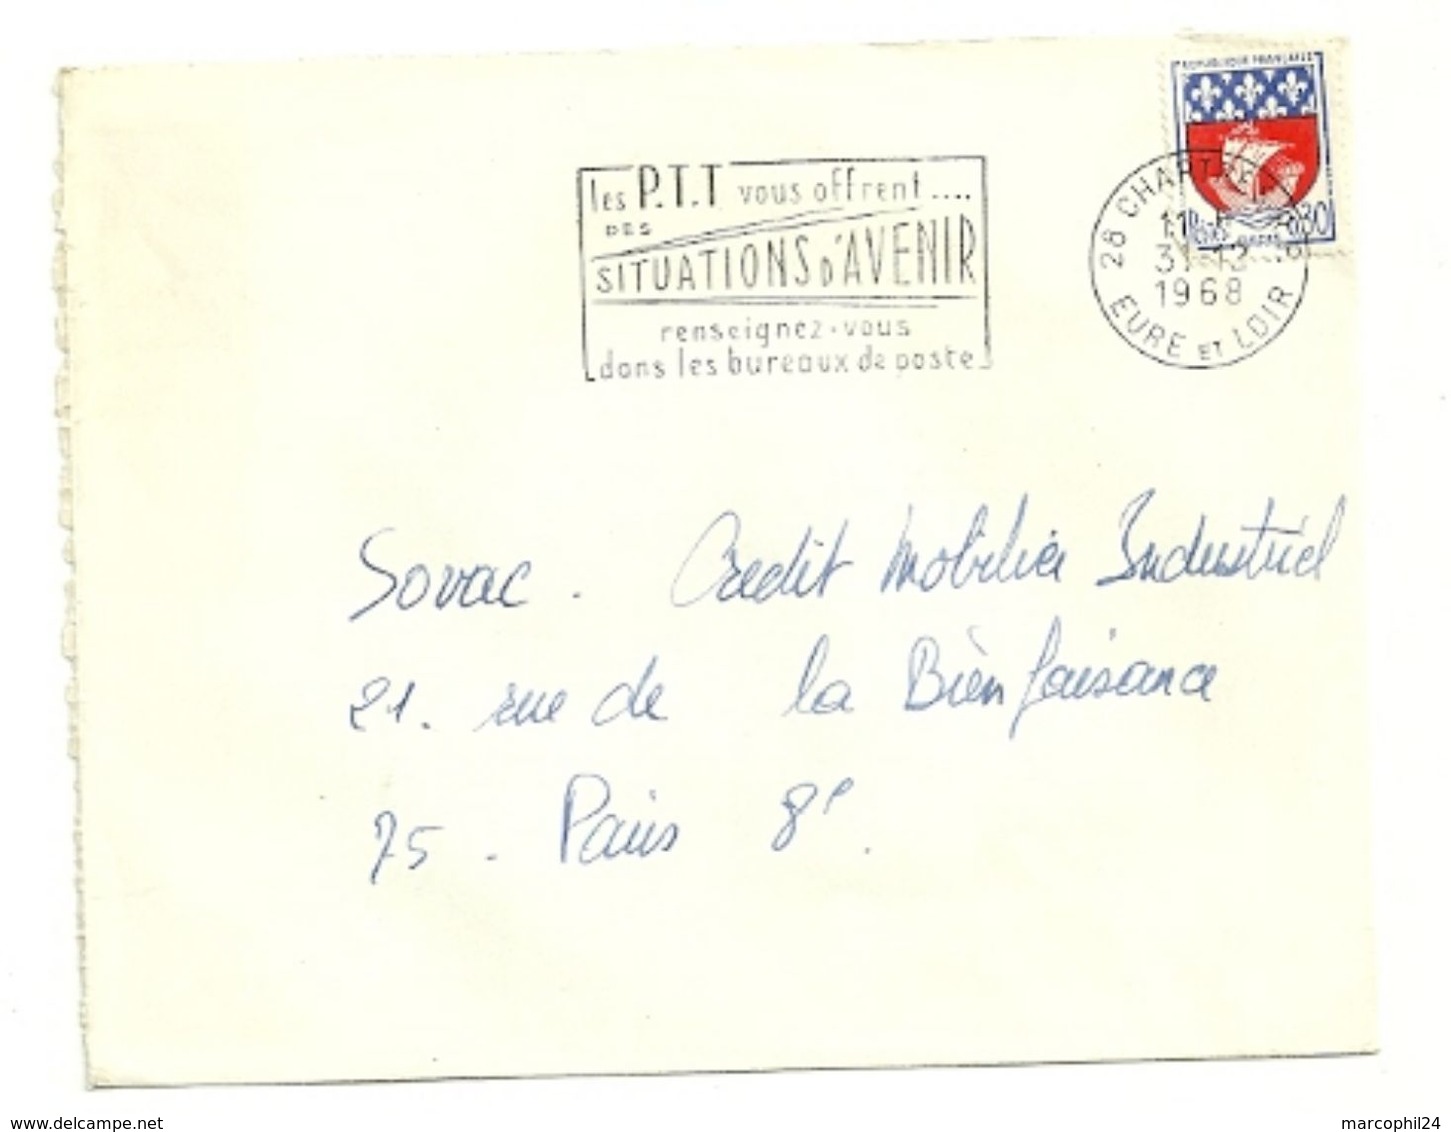 RÉPUBLIQUE FRANÇAISE
les P.T.T vous offrent.....
DES
SITUATIONS D'AVENIR
renseignez-vous
dans les bureaux de poste
28 CHARTRES
31-12
1968
EURE ET LOIR
POSTES PARIS 0,30
Sovac. Credit Mobilier Industriel
21. rue de la Bienfaisance
75. Paris 8e.
www.delcampe.net
marcophil24